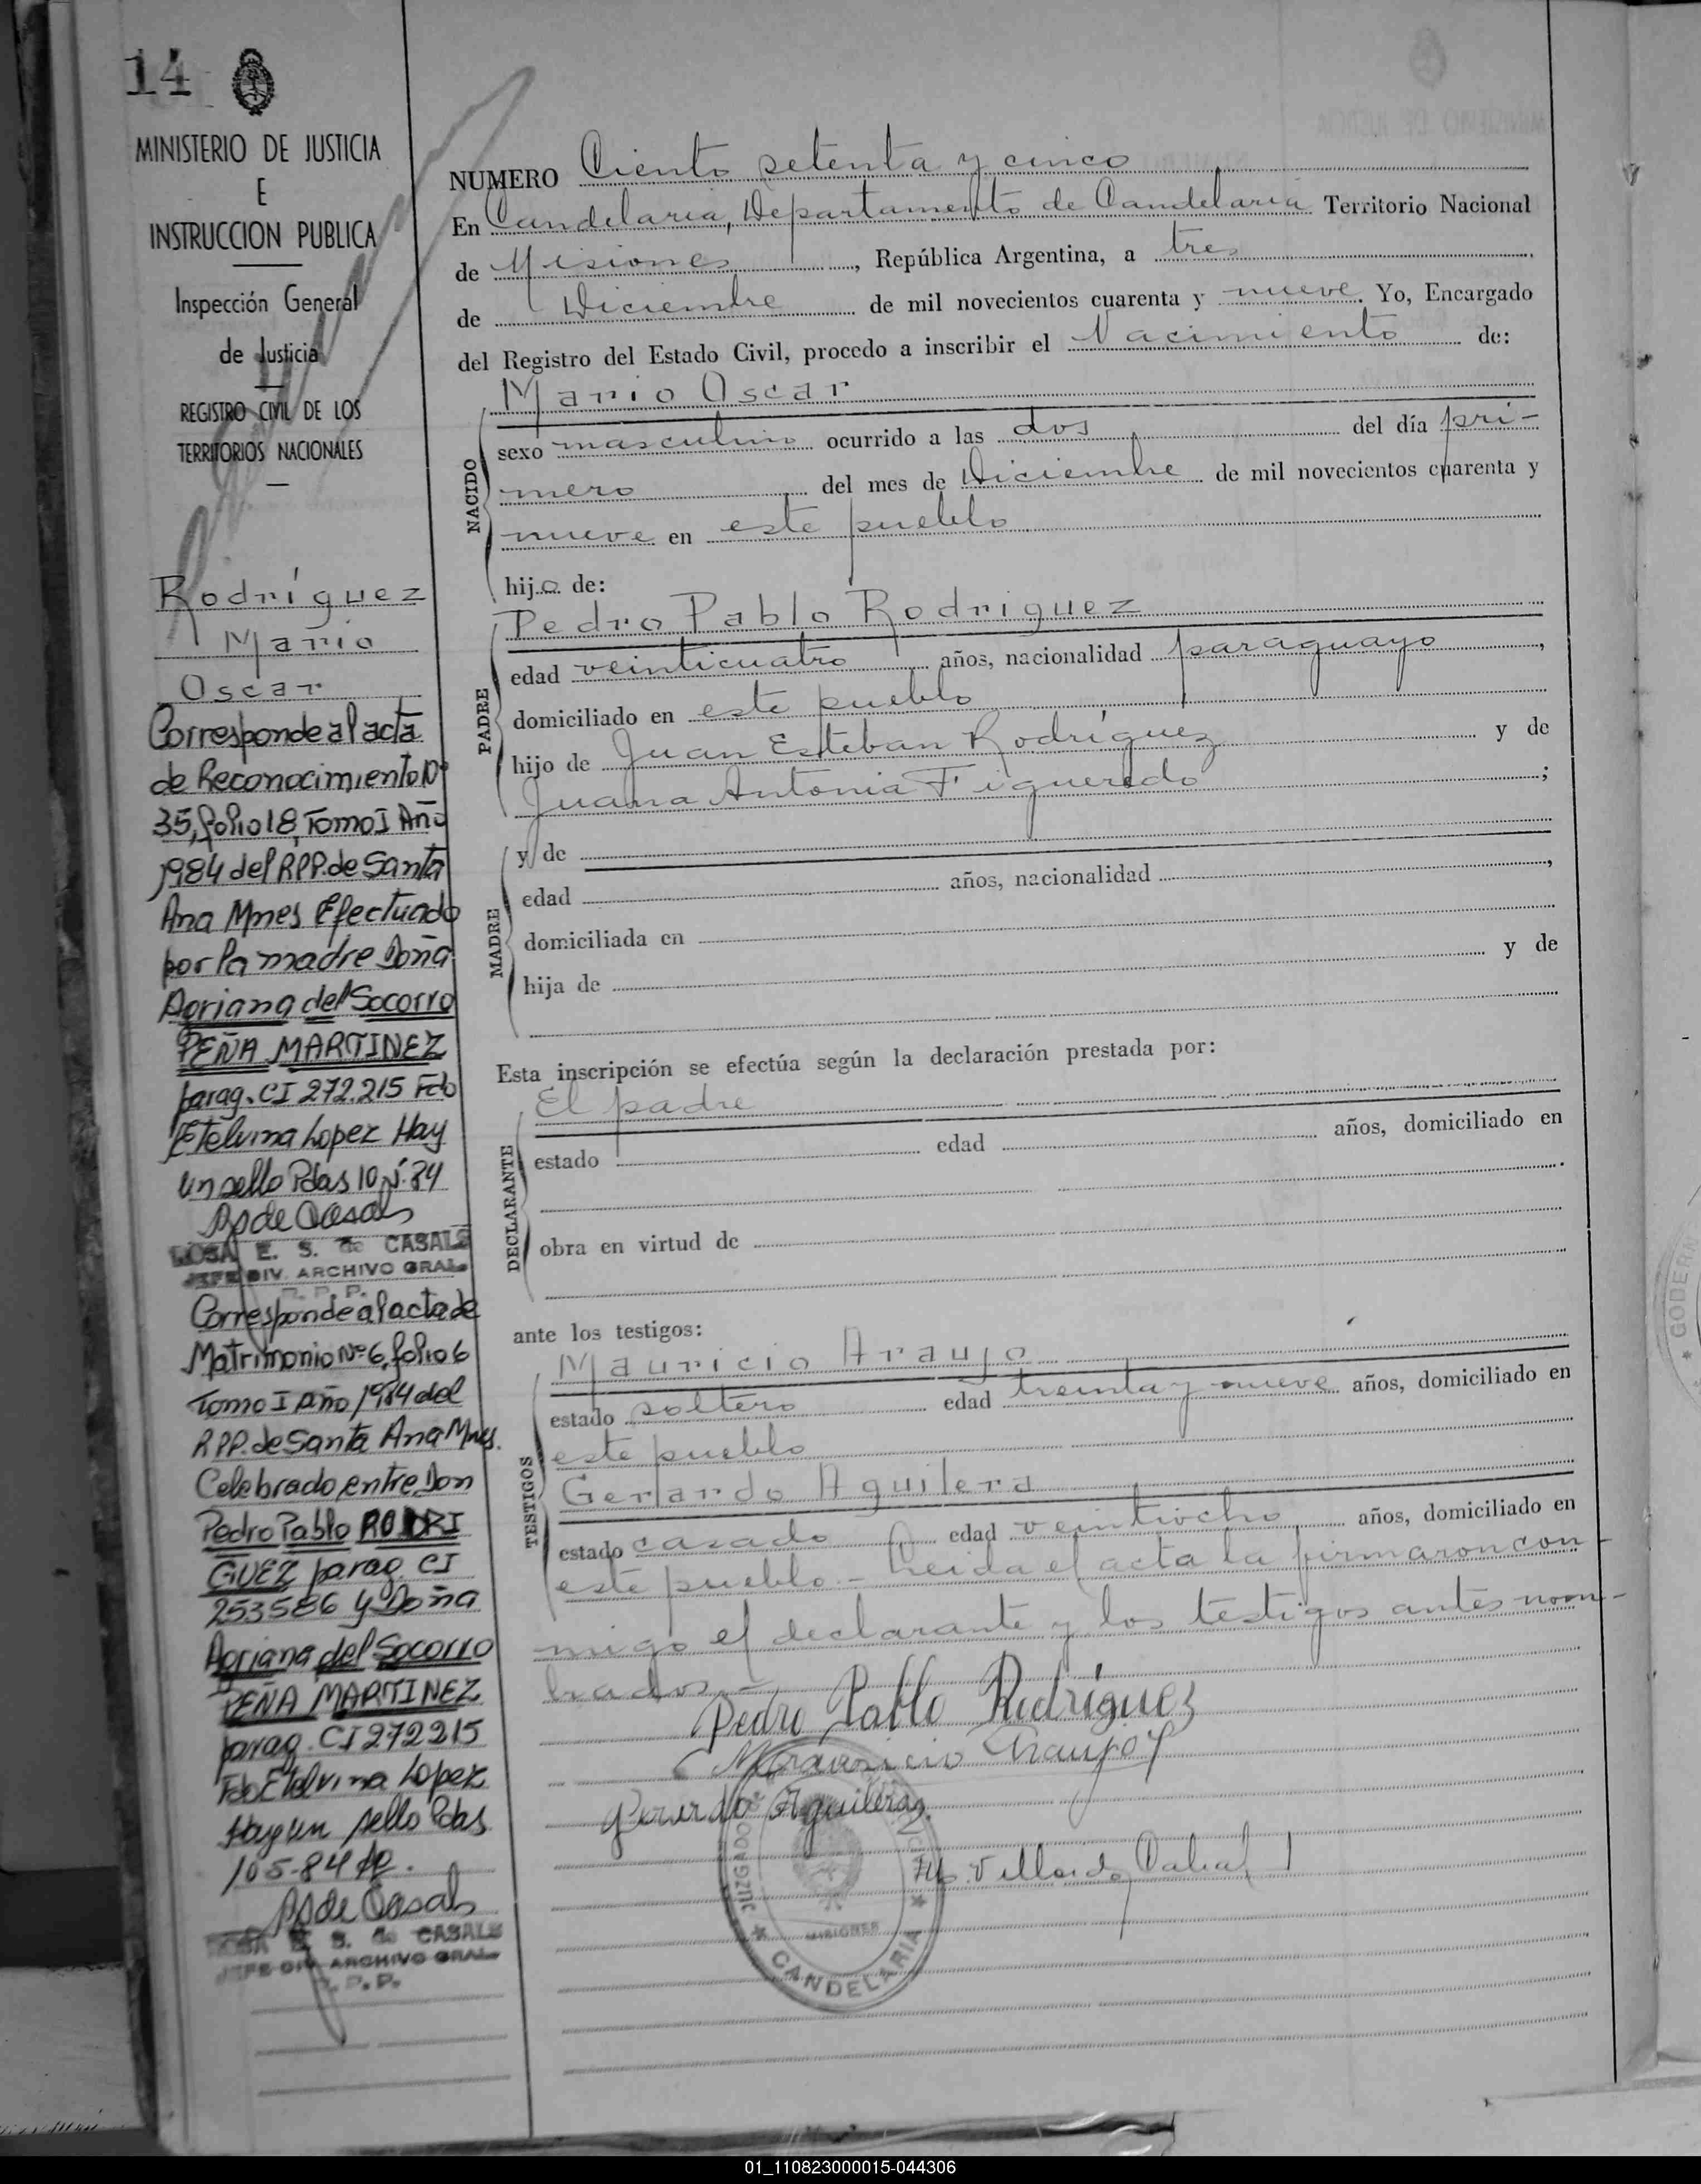 14
MINISTERIO DE JUSTICIA
E
INSTRUCCION PUBLICA
Inspección General
de Justicia
REGISTRO CIVIL DE LOS
TERRITORIOS NACIONALES
Rodríguez
Mario
Oscar
Corresponde al acta
de Reconocimiento Nº
35, folio 18, Tomo I Año
1984 del RPP. de Santa
Ana Mnes Efectuado
por la madre Doña
Adriana del Socorro
PEÑA MARTINEZ
parag. CI 272.215 Fdo
Etelvina Lopez Hay
un sello Pdas 10
RSde Casals
ROSA E. S. de CASALS
JEFE DIV. ARCHIVO GRAL.
R. P. P.
Corresponde al acta de
Matrimonio Nº 6, folio 6
Tomo I Año 1984 del
RPP. de Santa Ana Mnes.
Celebrado entre Don
Pedro Pablo RODRI
GUEZ parag. CI
253586 y Doña
Adriana del Socorro
PEÑA MARTINEZ
parag. CI 272215
Fdo Etelvina Lopez
Hay un sello Pdas
RSde Casals
ROSA E. S. de CASALS
JEFE DIV. ARCHIVO GRAL.
R. P. P.
NUMERO Ciento setenta y cinco
En Candelaria, Departamento de Candelaria Territorio Nacional
de Misiones, República Argentina, a tres
de Diciembre de mil novecientos cuarenta y nueve. Yo, Encargado
del Registro del Estado Civil, procedo a inscribir el Nacimiento de:
NACIDO
Mario Oscar
sexo masculino ocurrido a las dos del día pri-
mero del mes de Diciembre de mil novecientos cuarenta y
nueve en este pueblo
hijo de:
PADRE
Pedro Pablo Rodriguez
edad veinticuatro años, nacionalidad paraguayo,
domiciliado en este pueblo
hijo de Juan Esteban Rodríguez y de
Juana Antonia Figueredo;
MADRE
y de
edad años, nacionalidad ,
domiciliada en
hija de y de
Esta inscripción se efectúa según la declaración prestada por:
DECLARANTE
El padre
estado edad años, domiciliado en
obra en virtud de
ante los testigos:
TESTIGOS
Mauricio Araujo
estado soltero edad treinta y nueve años, domiciliado en
este pueblo
Gerardo Aguilera
estado casado edad veintiocho años, domiciliado en
este pueblo - Leida el acta la firmaron con
migo el declarante y los testigos antes nom-
brados.-
Pedro Pablo Rodríguez
Araujo
Gerardo Aguilera
Cabral
JUZGADO DE
MISIONES
CANDELARIA
GOBERN
01_110823000015-044306